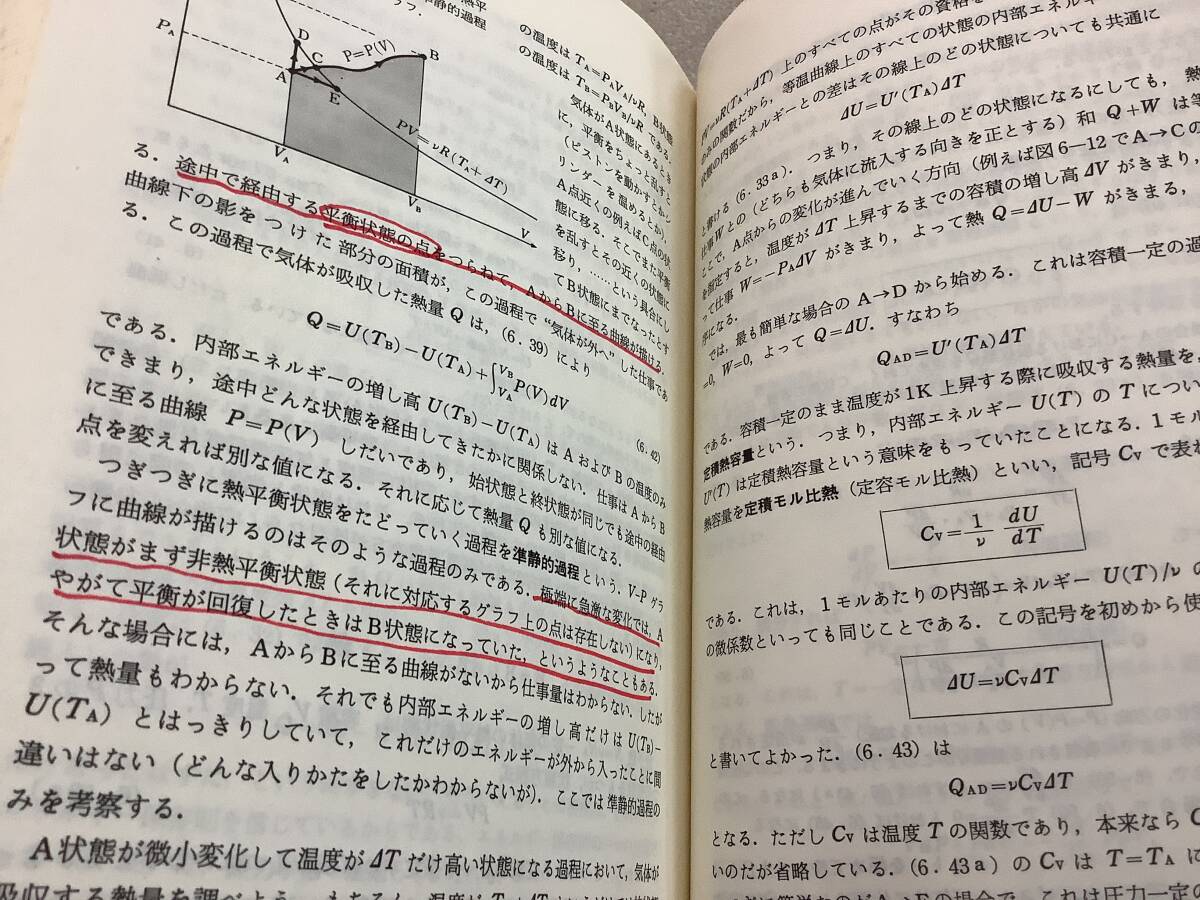 熱平
準静的過程
ラフ.
P_A
D
C
A
E
P=P(V)
B
PV=νR(T_A+ΔT)
V_A
V_B
V
の温度は T_A=P_AV_A/νR, B状態
の温度は T_B=P_BV_B/νR である.
気体がA状態にあるとき
に, 平衡をちょっと乱すと
(ピストンを動かすとかシ
リンダーを温めるとか),
A点近くの例えばC点の状
態に移る. そこでまた平衡
を乱すとその近くの状態に
移り, ……という具合にし
てB状態にまでなったとす
る. 途中で経由する平衡状態の点をつらねて, AからBに至る曲線が描ける.
曲線下の影をつけた部分の面積が, この過程で“気体が外へ”した仕事であ
る. この過程で気体が吸収した熱量 Q は, (6・39) により
Q=U(T_B)-U(T_A)+∫_{V_A}^{V_B}P(V)dV
(6・42)
である. 内部エネルギーの増し高 U(T_B)-U(T_A) は A および B の温度のみ
できまり, 途中どんな状態を経由してきたかに関係しない. 仕事は A から B
に至る曲線 P=P(V) しだいであり, 始状態と終状態が同じでも途中の経由
点を変えれば別な値になる. それに応じて熱量 Q も別な値になる.
つぎつぎに熱平衡状態をたどっていく過程を準静的過程という. V-P グラ
フに曲線が描けるのはそのような過程のみである. 極端に急激な変化では, A
状態がまず非熱平衡状態(それに対応するグラフ上の点は存在しない)になり,
やがて平衡が回復したときはB状態になっていた, というようなこともある.
そんな場合には, AからBに至る曲線がないから仕事量はわからない. したが
って熱量もわからない. それでも内部エネルギーの増し高だけは U(T_B)-
U(T_A) とはっきりしていて, これだけのエネルギーが外から入ったことに間
違いはない(どんな入りかたをしたかわからないが). ここでは準静的過程の
みを考察する.
A状態が微小変化して温度が ΔT だけ高い状態になる過程において, 気体が
吸収する熱量を調べよう.
νR(T_A+ΔT) 上のすべての点がその資格を
の関数だから, 等温曲線上のすべての状態の内部エネルギー
状態の内部エネルギーとの差はその線上のどの状態についても共通に
ΔU=U′(T_A)ΔT
と書ける (6・33a). つまり, その線上のどの状態になるにしても, 熱
仕事 W との (どちらも気体に流入する向きを正とする) 和 Q+W は等
ここで, A点からの変化が進んでいく方向 (例えば図 6—12 で A→C の
を指定すると, 温度が ΔT 上昇するまでの容積の増し高 ΔV がきまり,
って仕事 W=-P_AΔV がきまり, よって熱 Q=ΔU-W がきまる,
序になる.
では, 最も簡単な場合の A→D から始める. これは容積一定の過
=0, W=0, よって Q=ΔU. すなわち
Q_AD=U′(T_A)ΔT
である. 容積一定のまま温度が 1K 上昇する際に吸収する熱量を
定積熱容量という. つまり, 内部エネルギー U(T) の T につい
U′(T) は定積熱容量という意味をもっていたことになる. 1モル
熱容量を定積モル比熱 (定容モル比熱) といい, 記号 C_V で表わ
C_V=1/ν dU/dT
である. これは, 1モルあたりの内部エネルギー U(T)/ν の
の微係数といっても同じことである. この記号を初めから使
ΔU=νC_VΔT
と書いてよかった. (6・43) は
Q_AD=νC_VΔT
となる. ただし C_V は温度 T の関数であり, 本来なら C
いのだが省略している. (6・43a) の C_V は T=T_A に